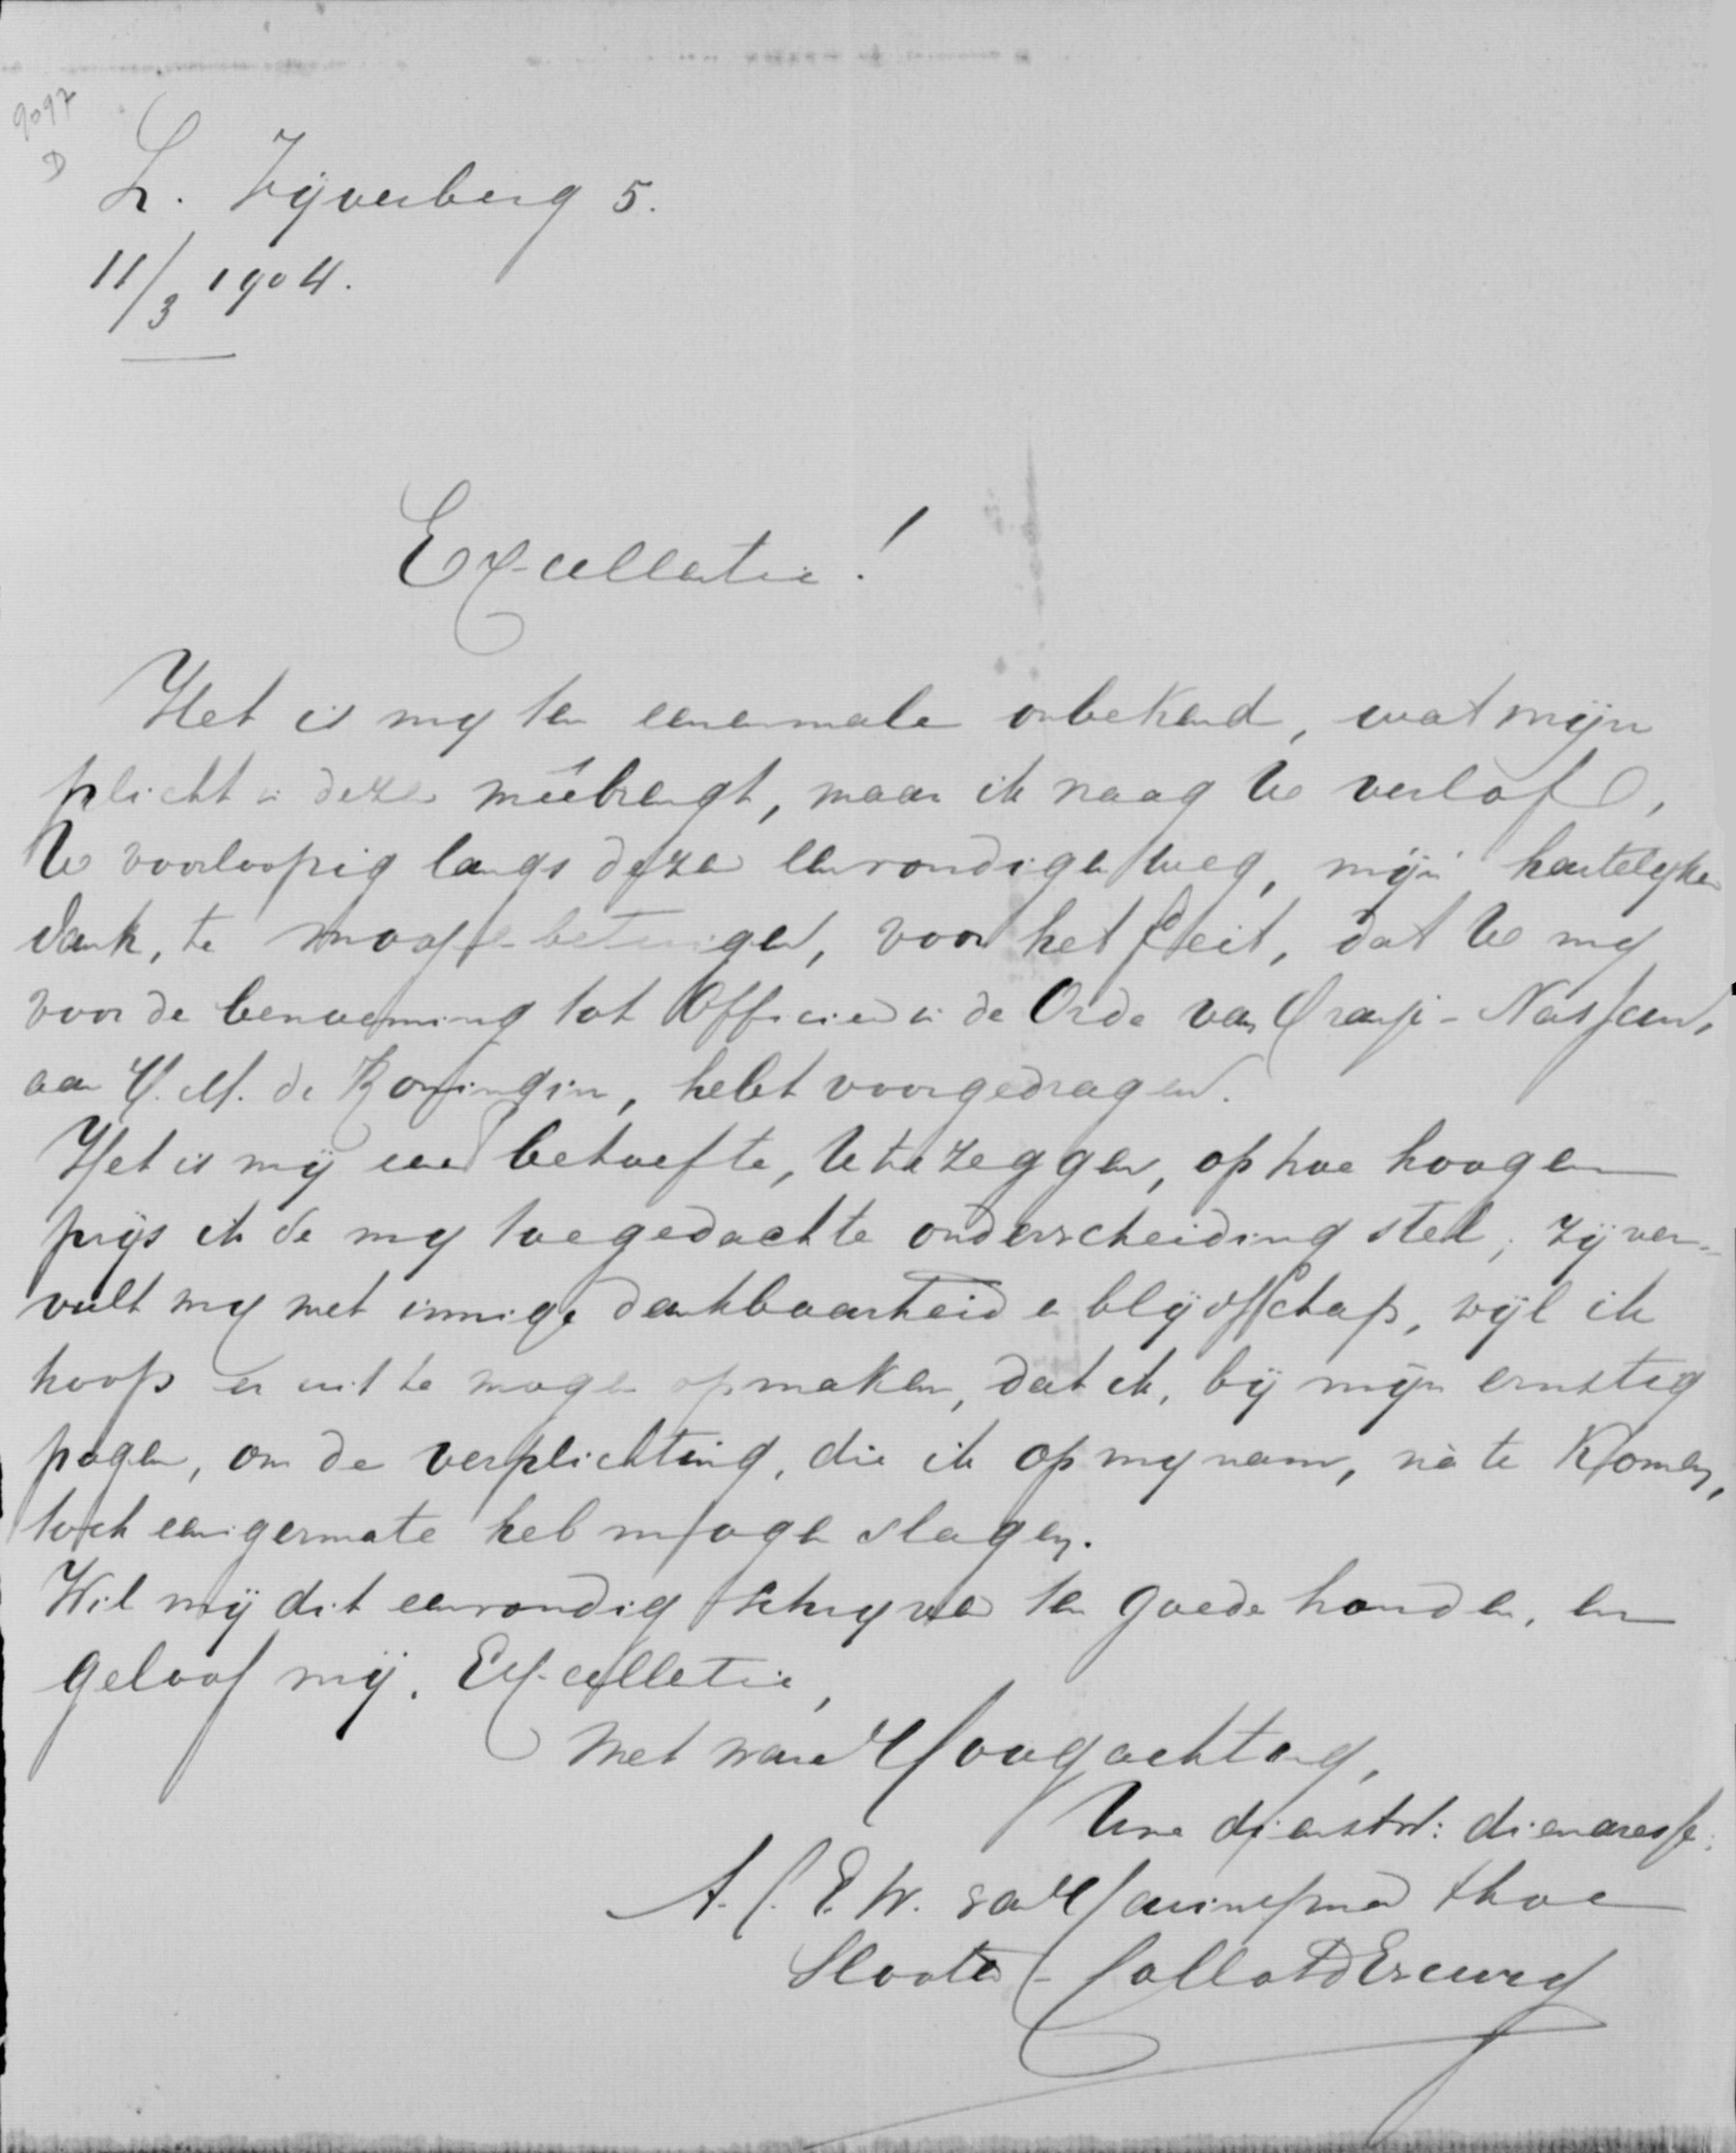 9097
D
L. Vijverberg 5.
11/3 1904.
Excellentie!
Het is mij ten eenenmale onbekend, wat mijn
plicht in dezen meêbrengt, maar ik vraag Uw verlof,
U voorloopig langs dezen eenvondigen weg, mijn hartelijken
dank, te mogen betuigen, voor het feit, dat U mij
voor de benoeming tot Officier in de Orde van Oranje-Nassau,
aan H. M. de Koningin, hebt voorgedragen.
Het is mij een behoefte, U te zeggen, op hoe hoogen
prijs ik de mij toegedachte onderscheiding stel; zij ver-
vult mij met innige dankbaarheid en blijdschap, wijl ik
hoop er uit te mogen opmaken, dat ik, bij mijn ernstig
pogen, om de verplichting, die ik op mij nam, nà te komen,
toch eenigermate heb mogen slagen.
Wil mij dit eenvondig schrijven ten goede houden, en
geloof mij, Excellentie,
Met ware Hoogachting,
Uwe dienstw: dienaresse:
A. C. E. W. van Harinxma thoe
Slooten - Collot d'Escury